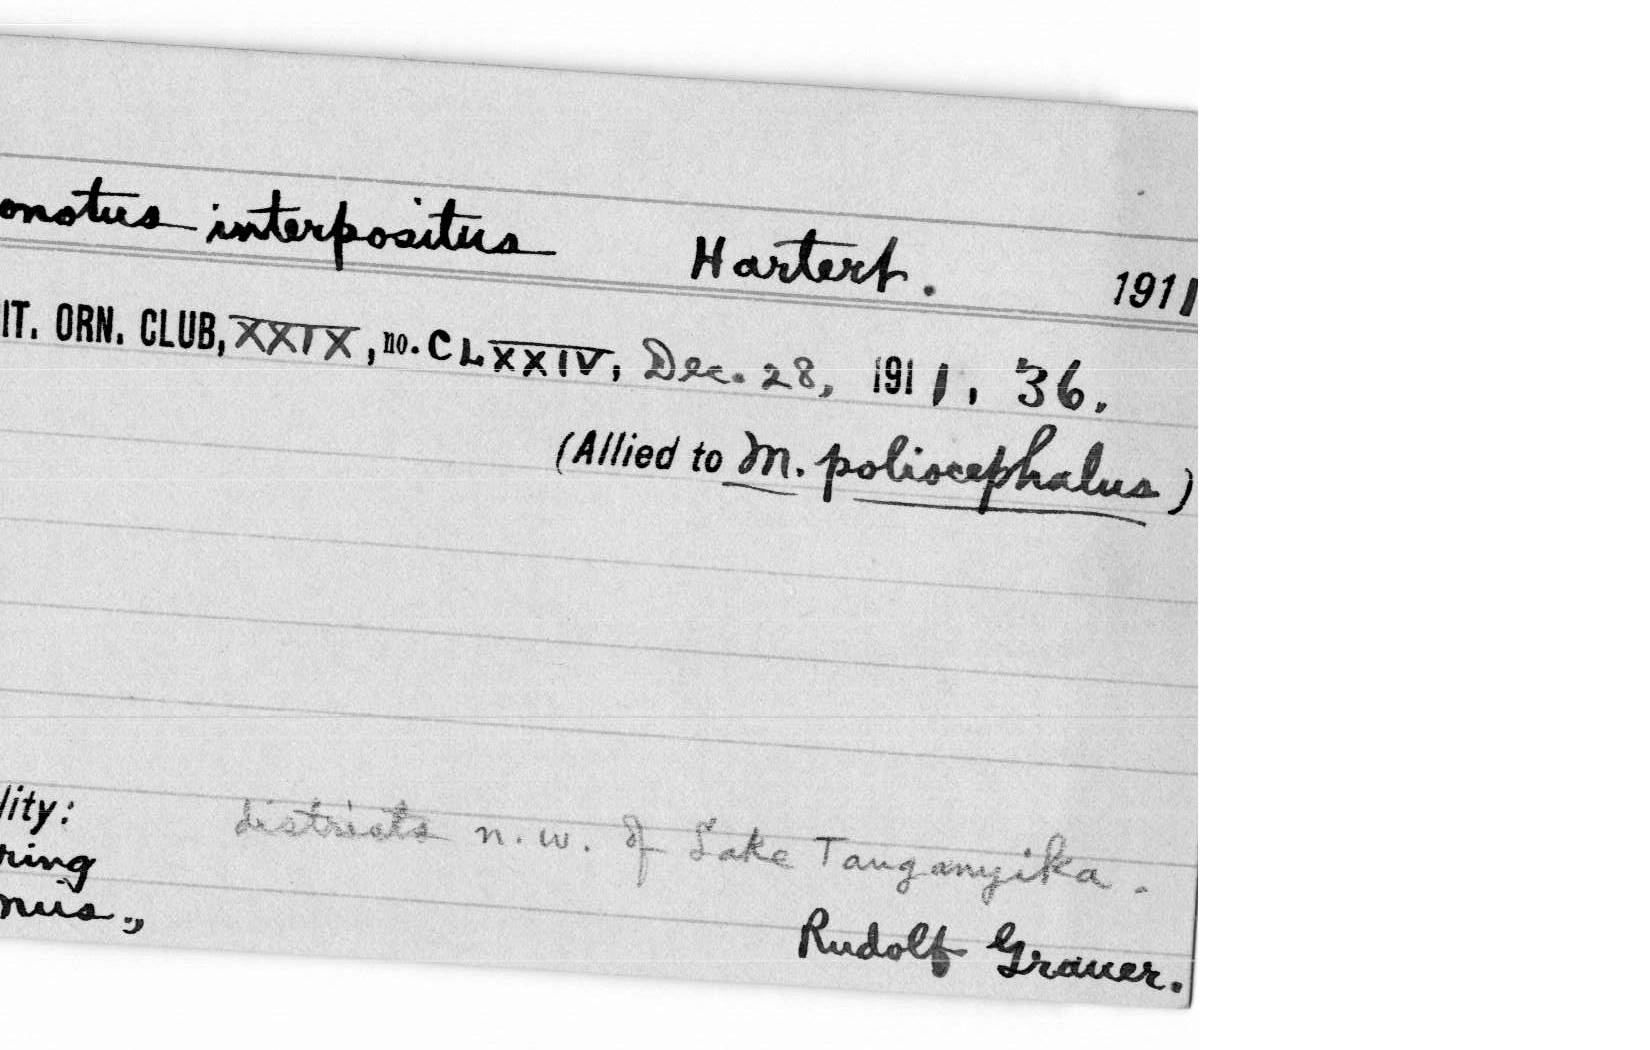 onotus interpositus Hartert. 1911
IT. ORN. CLUB, XXIX, no. CLXXIV, Dec. 28, 1911, 36.
(Allied to M. poliocephalus)
lity: districts n.w. of Lake Tanganyika.
ring
nus., Rudolf Grauer.